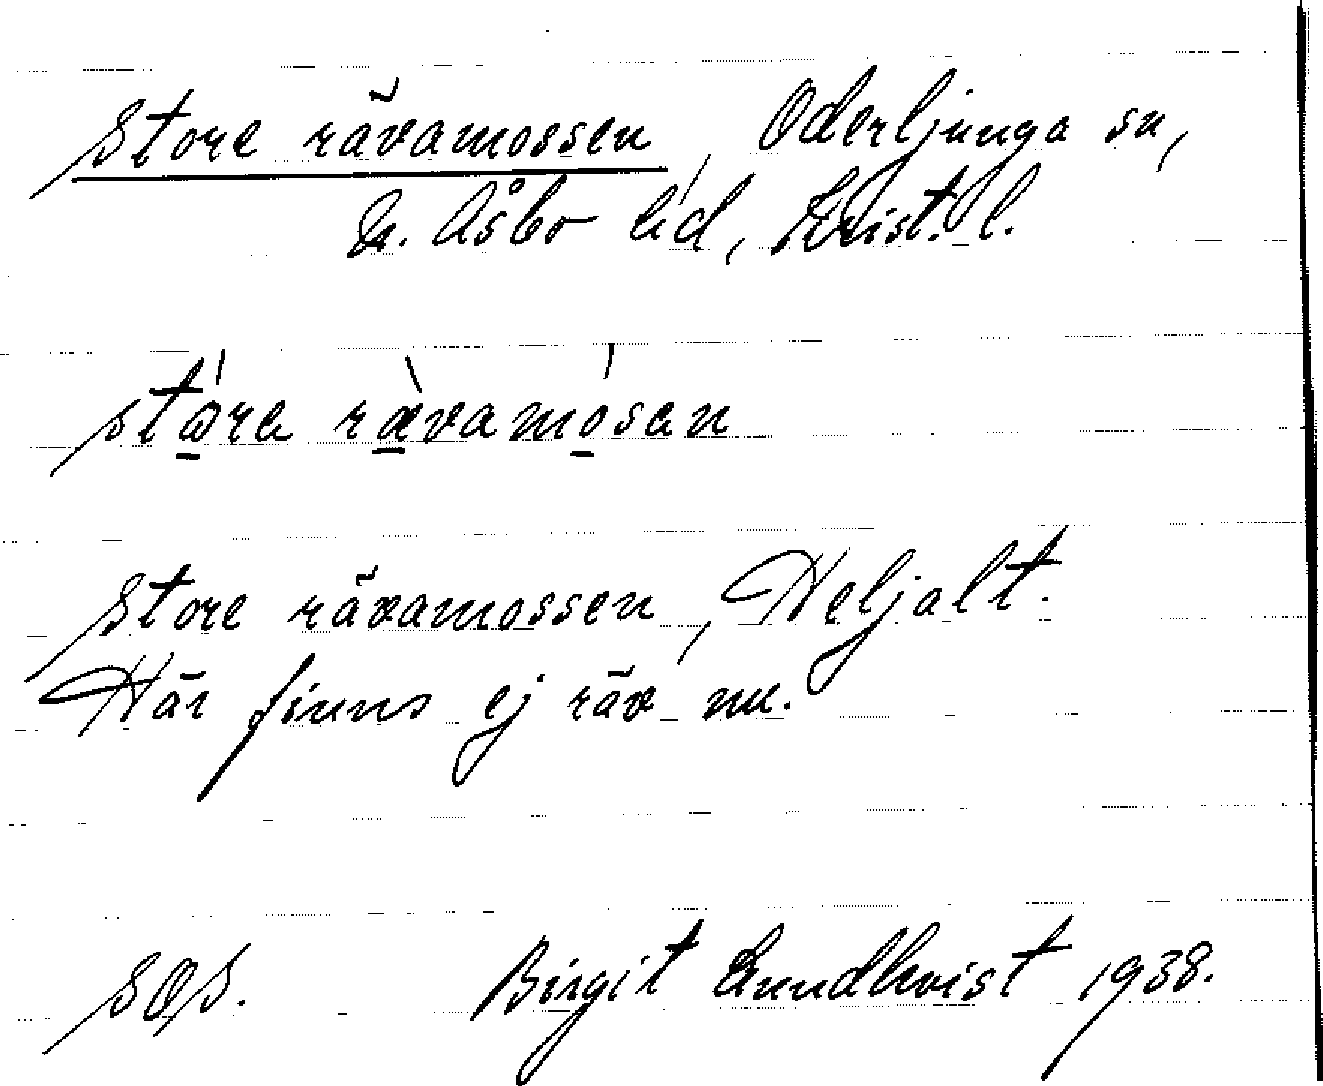 Store rävamossen, Oderljunga sn,
N. Åsbo hd, Krist. l.
störe rævamosen
Store rävamossen, Heljalt.
Här finns ej räv nu.
SOS. Birgit Lundkvist 1938.